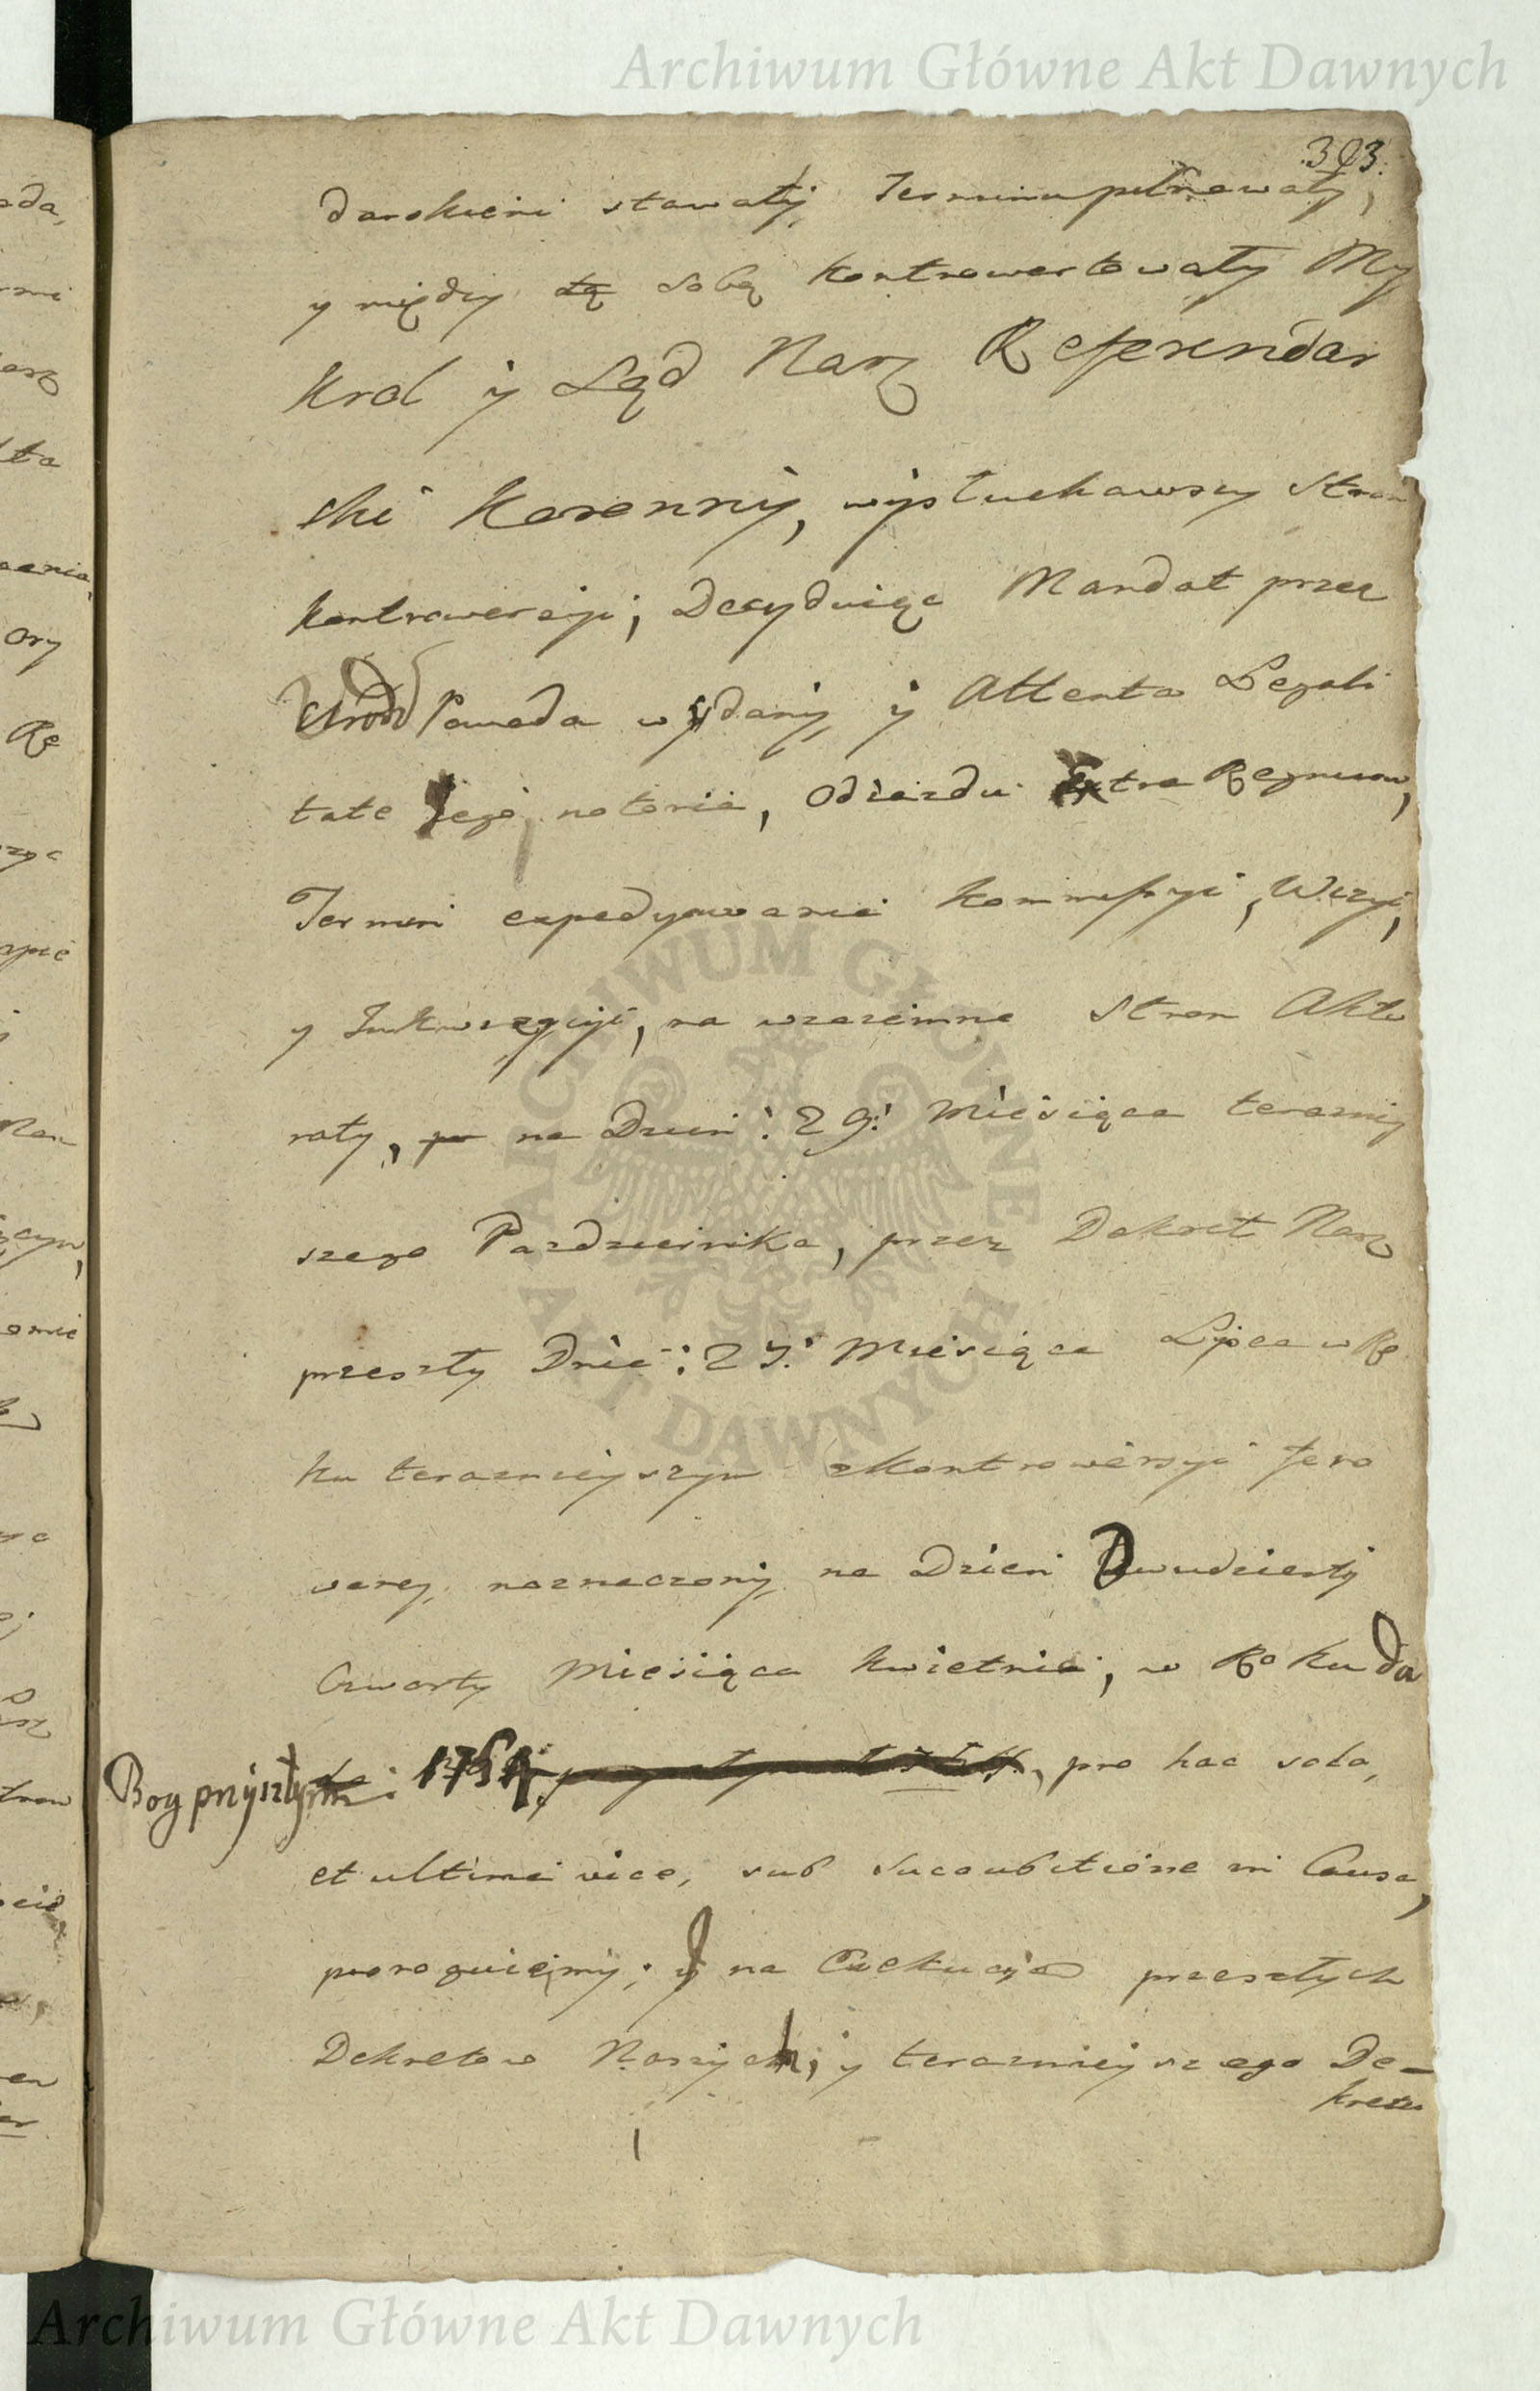 Archiwum Główne Akt Dawnych
393.
darskiemi stawały, Terminu pilnowały,
y między sobą kontrowertowały My
Krol y Sąd Nasz Referendar
ski Koronny, wysłuchawszy Stron
kontrowersyi, Decyduiąc Mandat przez
Urodz Pawęda wydany, y Attenta Legali
tate Jego notorie, Odiazdu Extra Regnum,
Termin expedyowania Kommissyi, Wizyi,
y Inkwizycyi, na wzaiemne Stron Akto
raty, na Dzien: 29: Miesiąca terazniey
szego Pazdziernika, przez Dekret Nasz
przeszły Dnia: 27: Miesiąca Lipca w Ro
ku teraznieyszym z Kontrowersyi fero
wany, naznaczony, na Dzien Dwudziesty
Czwarty Miesiąca Kwietnia, w Roku da
Bog przyszłym: 1764, pro hac sola,
et ultima vice, sub succubitione in Causa,
proroguiemy; y na Exekucyą przeszłych
Dekretow Naszych, y teraznieyszego De-
kretu
ARCHIWUM GŁÓWNE AKT DAWNYCH
Archiwum Główne Akt Dawnych